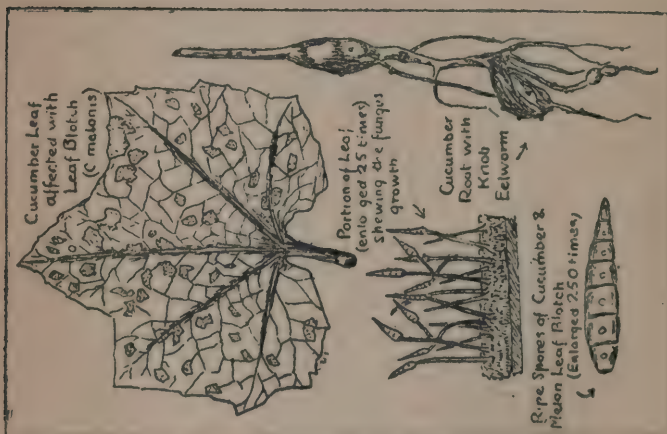 Cucumber Leaf
affected with
Leaf Blotch
(C melonis)
Portion of Leaf
(enlo ged 25 times)
shewing the fungus
growth
Cucumber
Root with
Knob
Eelworm
Ripe Spores of Cucumber &
Melon Leaf Blotch
(Enlarged 250 times)